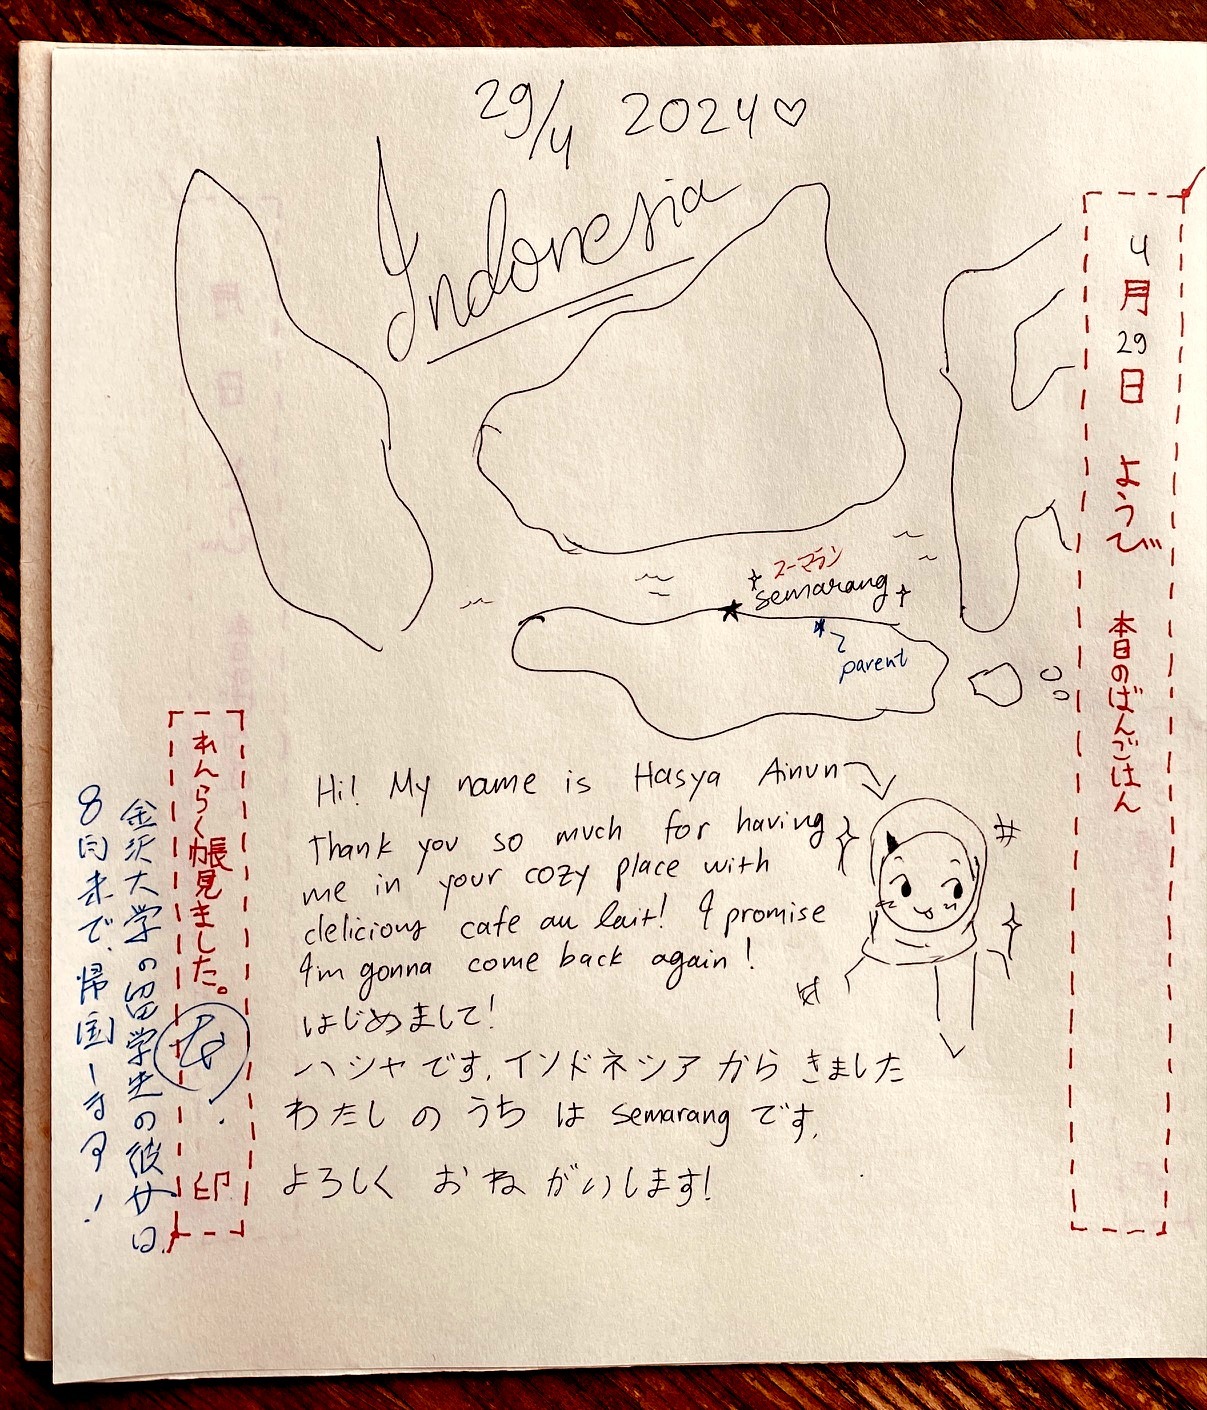 29/4 2024♡
Indonesia
4月29日 ようび 本日のばんごはん
スーマラン
semarang
parent
Hi! My name is Hasya Ainun
Thank you so much for having
me in your cozy place with
delicious cafe au lait! I promise
I'm gonna come back again!
はじめまして!
ハシヤです. インドネシア から きました
わたし の うち は semarang です.
よろしく おねがいします!
れんらく帳見ました。 印
金沢大学の留学生の彼女は、
8月末で、帰国します!